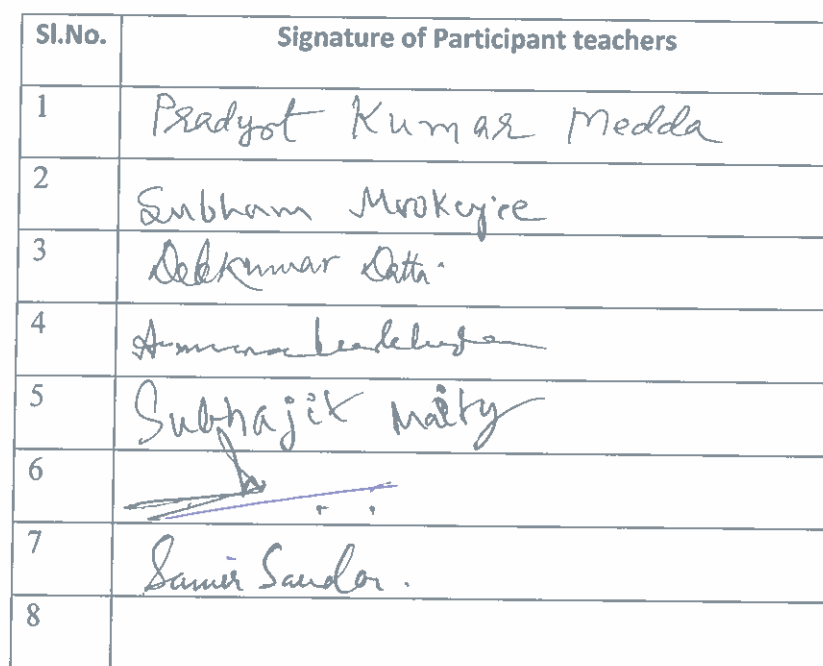 Sl.No. Signature of Participant teachers
1 Pradyot Kumar Medda
2 Subham Mookerjee
3 Debkumar Datta
4
5 Subhajit Maity
6
7 Samir Sandar.
8